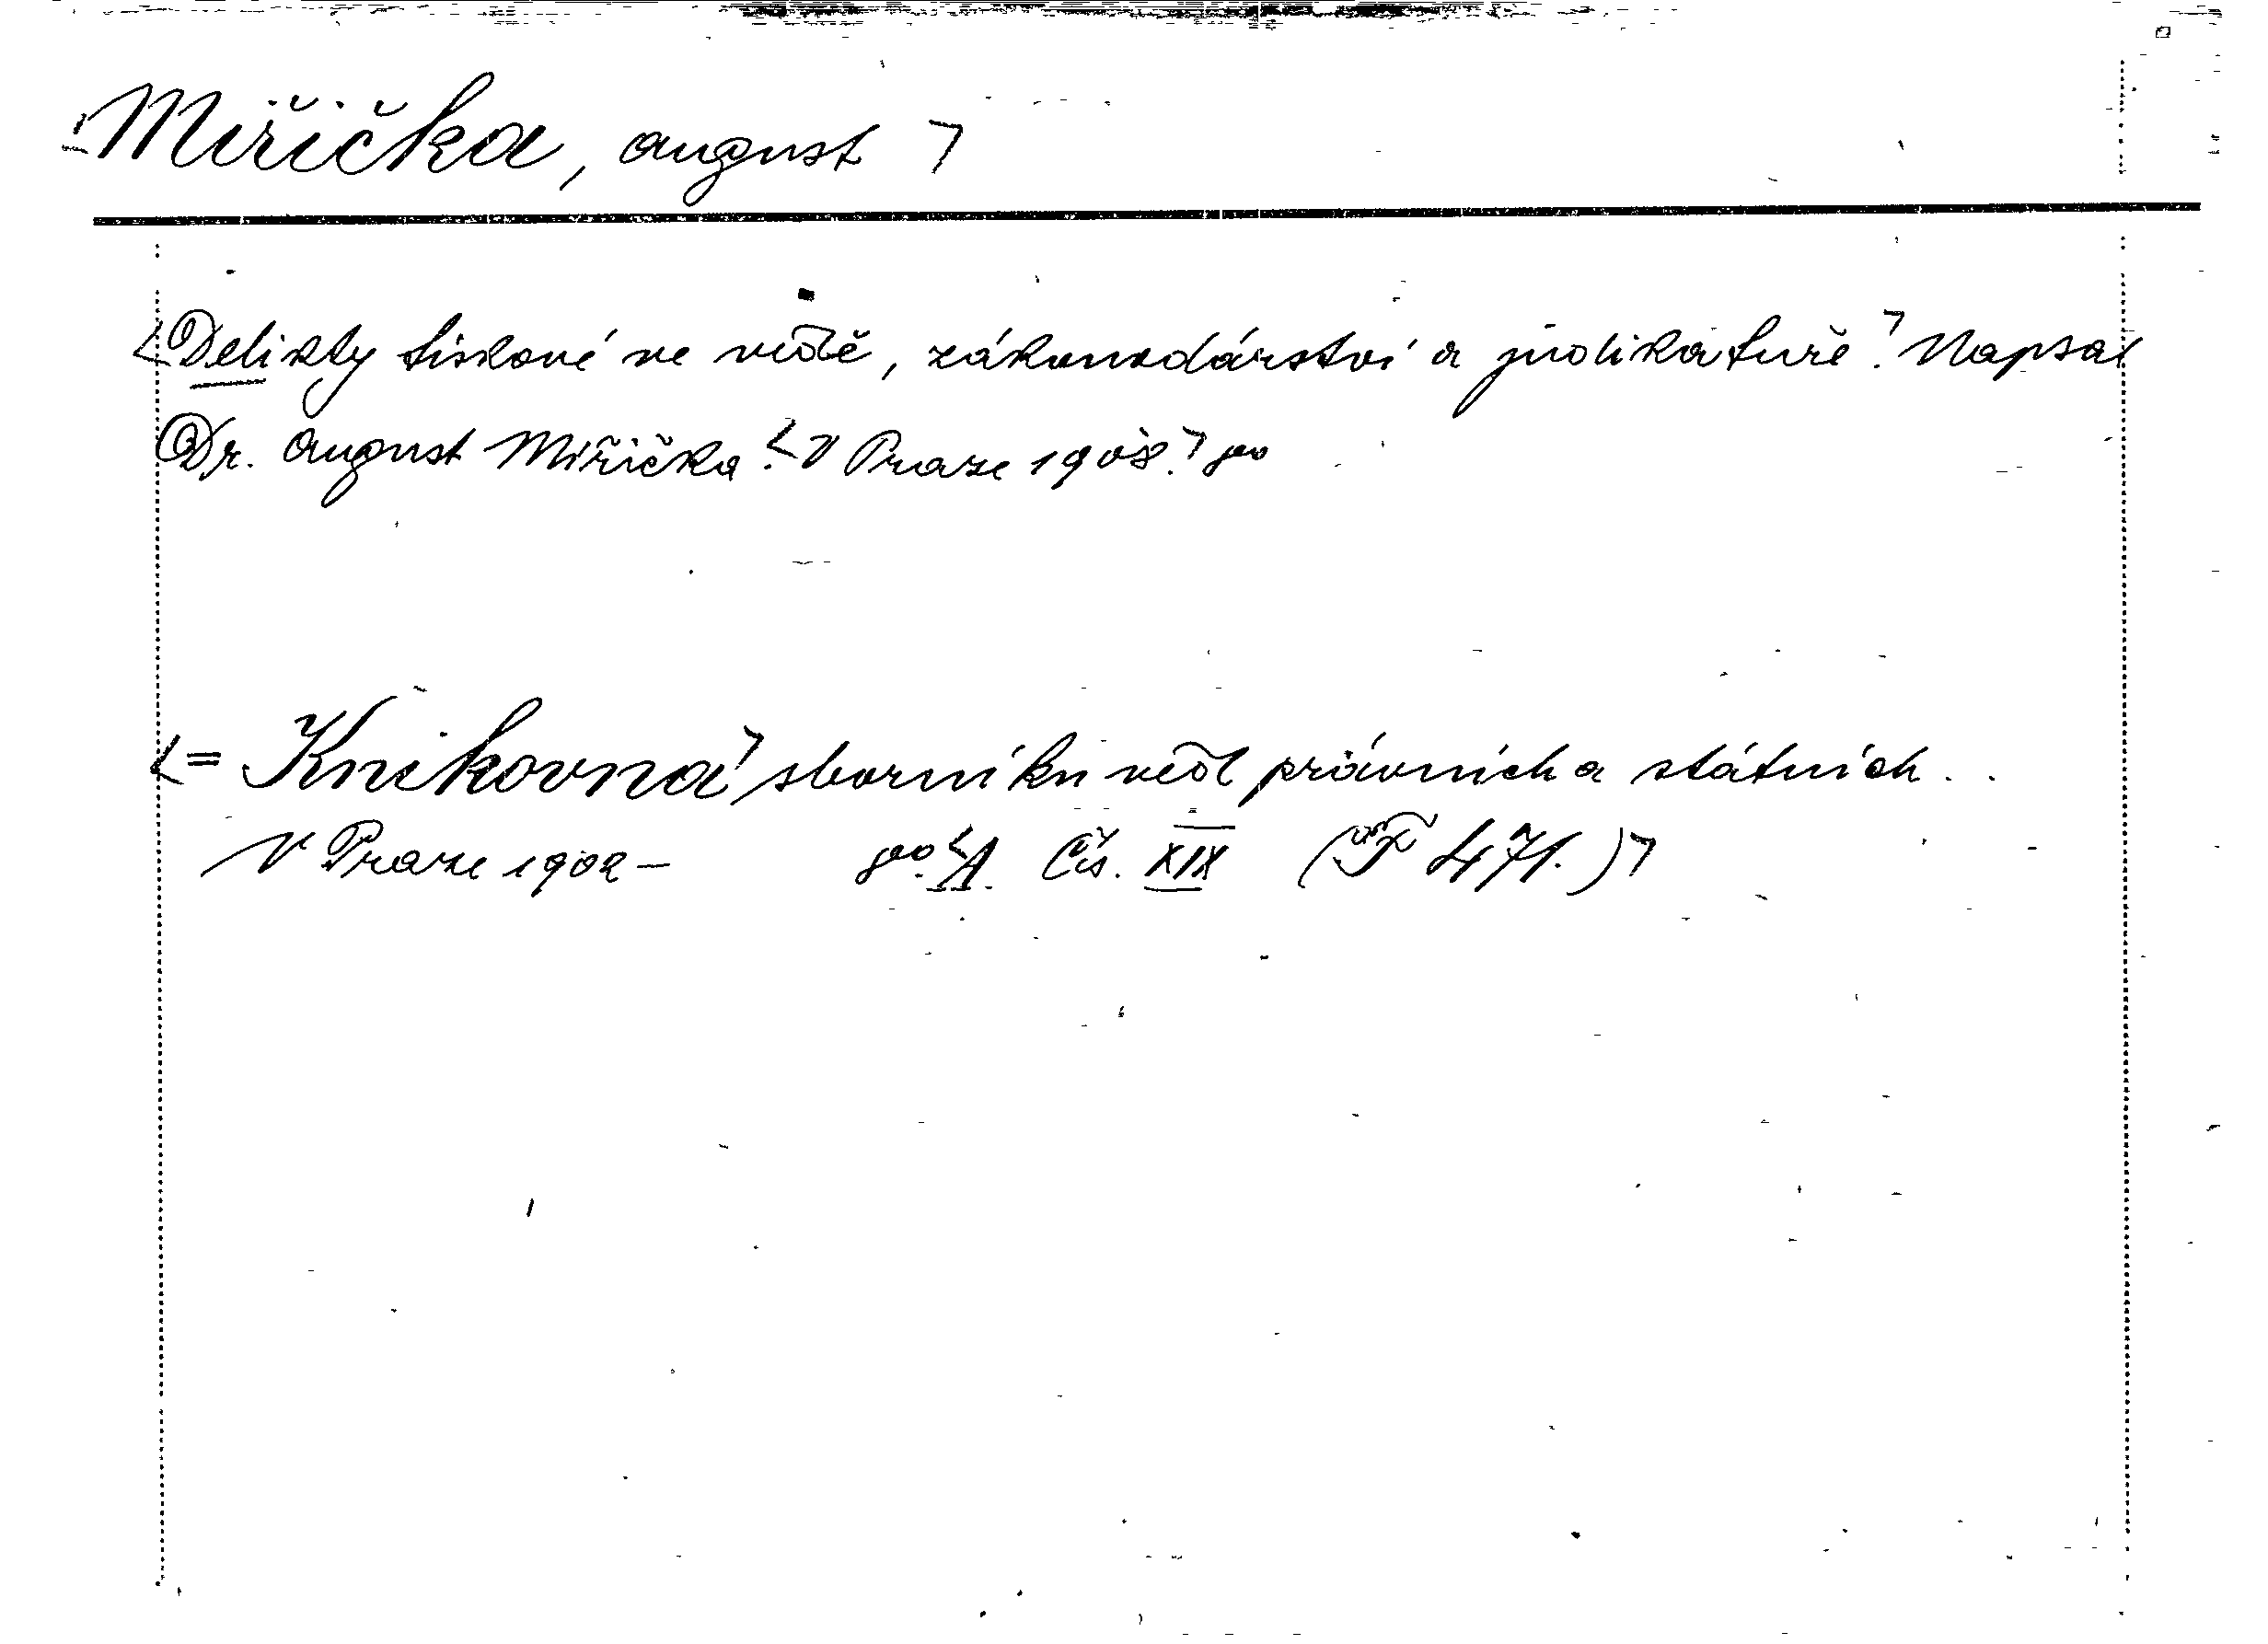 Miřička, August
Delikty tiskové ve vědě, zákonodárství a judikatuře. Napsal
Dr. August Miřička. V Praze 1908. 8°
= Knihovna sborníku věd právních a státních..
V Praze 1902 – 8°. A. Čís. XIX (F 471.)